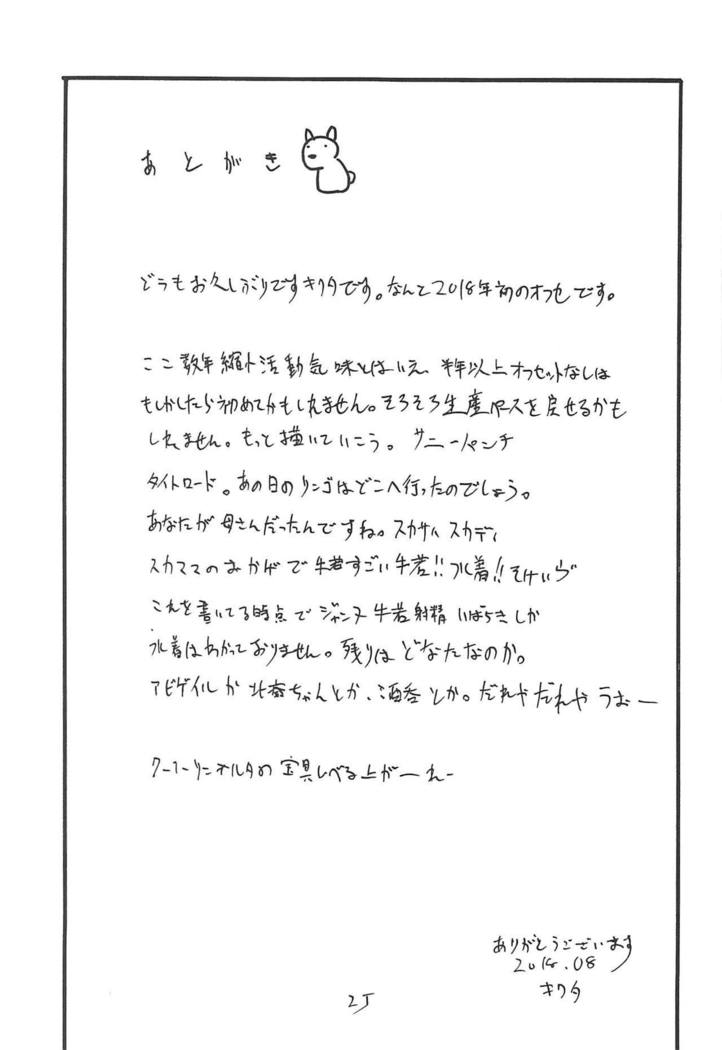 あとがき
どうもお久しぶりですキクタです。なんと2018年初のオフセです。
ここ数年縮小活動気味とはいえ、半年以上オフセットなしは
もしかしたら初めてかもしれません。そろそろ生産ペースを戻せるかも
しれません。もっと描いていこう。サニーパンチ
タイトロード。あの日のリンゴはどこへ行ったのでしょう。
あなたが母さんだったんですね。スカサハ スカディ
スカママのおかげで牛若すごい牛若!!水着!!
これを書いてる時点でジャンヌ 牛若 射精 いばらきしか
水着はわかっておりません。残りはどなたなのか。
アビゲイルか北斎ちゃんとか、酒呑とか。だれや だれや うおー
クーフーリンオルタの宝具レベる上がーれー
ありがとうございます
2018.08
キクタ
25